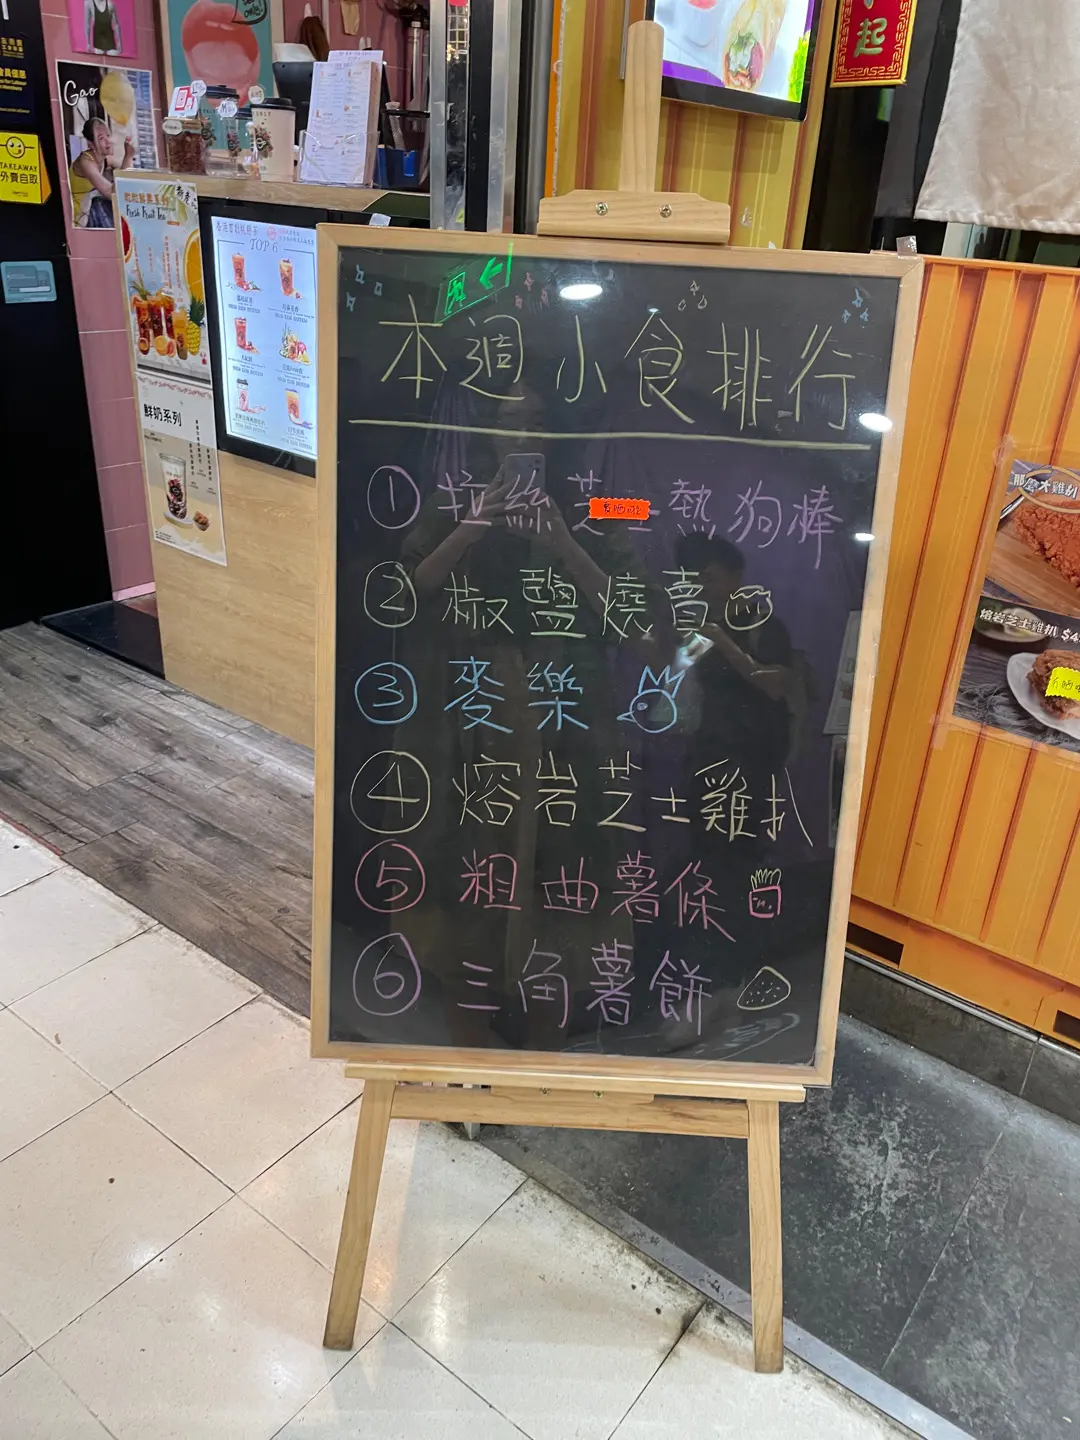 本週小食排行
① 拉絲芝士熱狗棒
賣晒啦
② 椒鹽燒賣
③ 麥樂
④ 熔岩芝士雞扒
⑤ 粗曲薯條
⑥ 三角薯餅
TAKEAWAY
外賣自取
Gao
Fresh Fruit Tea
TOP 6
鮮奶系列
起
大雞扒
熔岩芝士雞扒 $4